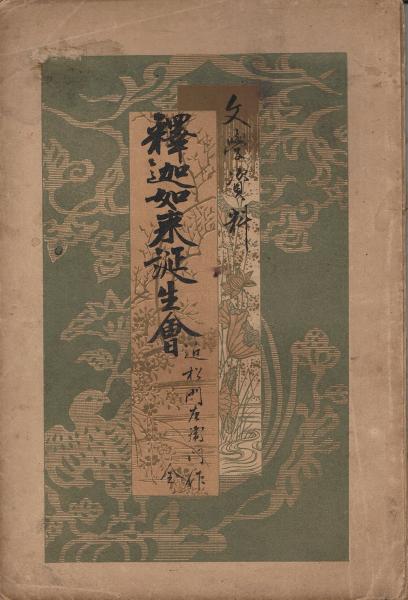 文学資料
釋迦如来誕生會
近松門左衛門作
全